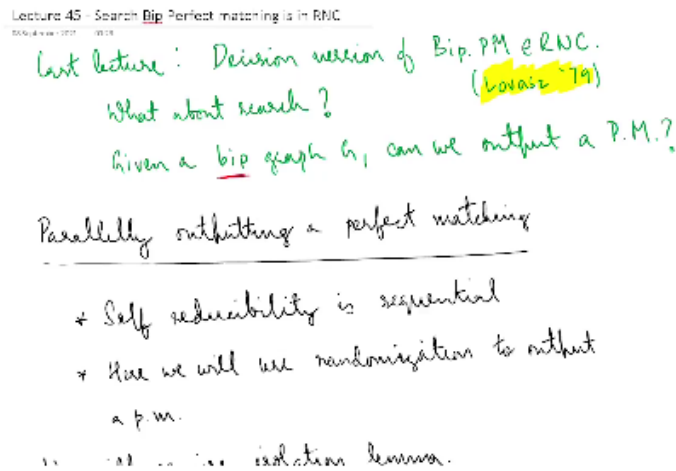 Lecture 45 - Search Bip Perfect matching is in RNC
Last lecture: Decision version of Bip. PM ∈ RNC.
(Lovasz '79)
What about search?
Given a bip graph G, can we output a P.M.?
Parallelly outputting a perfect matching
* Self reducibility is sequential
* Here we will use randomization to output
a p.m.
isolation lemma.